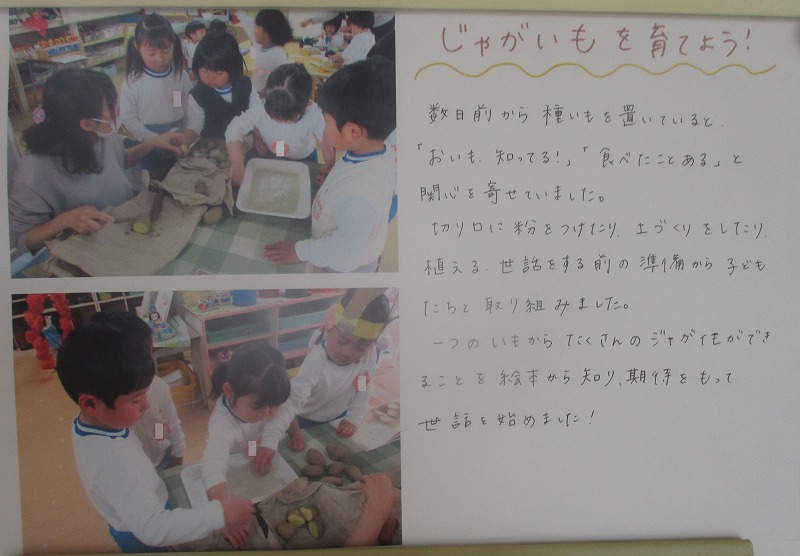 じゃがいもを育てよう!
数日前から種いもを置いていると、
「おいも、知ってる!」「食べたことある」と
関心を寄せていました。
切り口に粉をつけたり、土づくりをしたり、
植える、世話をする前の準備から子ども
たちと取り組みました。
一つのいもからたくさんのジャガイモができ
ることを絵本から知り、期待をもって
世話を始めました!